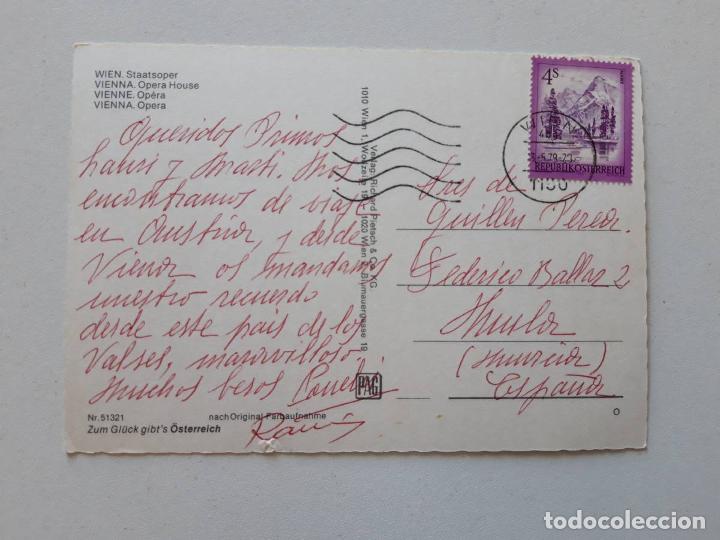 WIEN. Staatsoper
VIENNA. Opera House
VIENNE. Opéra
VIENNA. Opera
Queridos Primos
y Marti. Nos
encontramos de viaje
en Austria, y desde
Viena os mandamos
nuestro recuerdo
desde este pais de los
Valses, maravilloso.
Muchos besos
Nr. 51321
nach Original-Farbaufnahme
Zum Glück gibt's Österreich
Verlag: Richard Pietsch & Co. KG
1010 Wien 1, Wollzeile
1020 Wien Blumauergasse 19
PAG
4S
REPUBLIK ÖSTERREICH
WIEN
1150
Sres de
Guillen Perea
Federico Ballar 2
Mula
(Murcia)
España
todocoleccion
todocoleccion.net